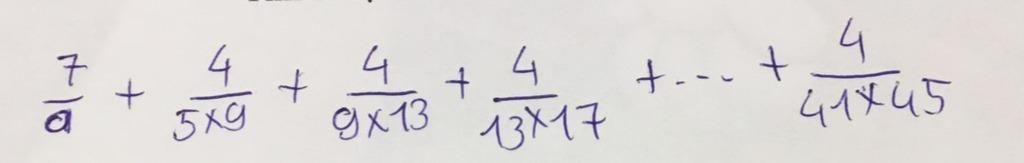 7/a + 4/5×9 + 4/9×13 + 4/13×17 + ... + 4/41×45